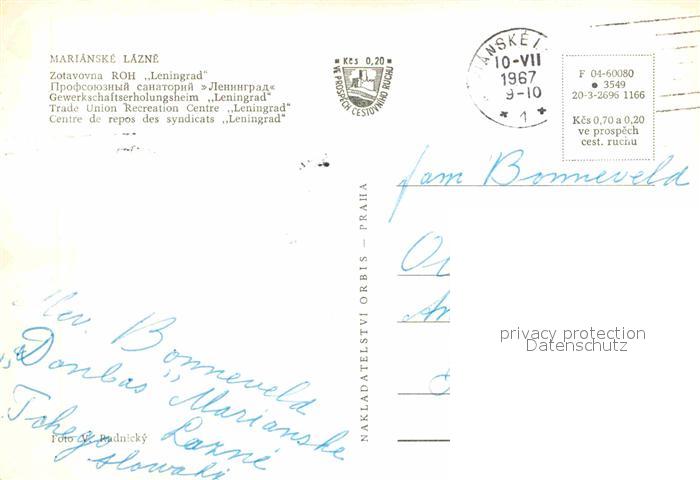 MARIÁNSKÉ LÁZNĚ
Zotavovna ROH „Leningrad"
Профсоюзный санаторий »Ленинград«
Gewerkschaftserholungsheim „Leningrad"
Trade Union Recreation Centre „Leningrad"
Centre de repos des syndicats „Leningrad"
Kčs 0,20
VE PROSPĚCH CESTOVNÍHO RUCHU
10-VII
1967
9-10
* 1 *
F 04-60080
● 3549
20-3-2696 1166
Kčs 0,70 a 0,20
ve prospěch
cest. ruchu
fam Bonneveld
privacy protection
Datenschutz
NAKLADATELSTVÍ ORBIS — PRAHA
Bonneveld
„Donbas" Marianske
Lazne
Tchego
slowaky
Foto V. Rudnický